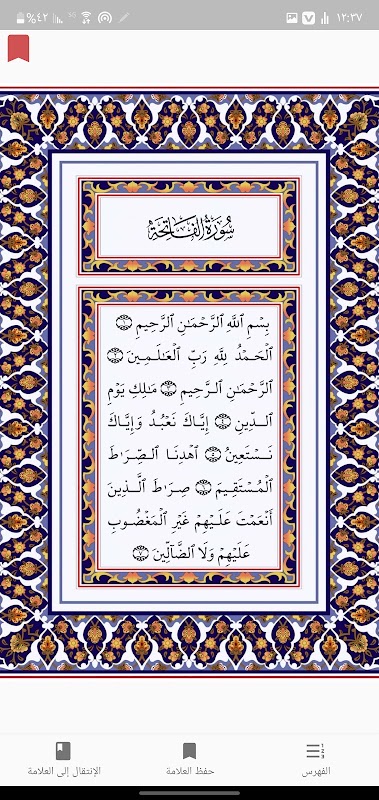 ١٢:٣٧
%٤٢
سُورَةُ الفَاتِحَةِ
بِسْمِ ٱللَّهِ ٱلرَّحْمَـٰنِ ٱلرَّحِيمِ ۝١
ٱلْحَمْدُ لِلَّهِ رَبِّ ٱلْعَـٰلَمِينَ ۝٢
ٱلرَّحْمَـٰنِ ٱلرَّحِيمِ ۝٣ مَـٰلِكِ يَوْمِ
ٱلدِّينِ ۝٤ إِيَّاكَ نَعْبُدُ وَإِيَّاكَ
نَسْتَعِينُ ۝٥ ٱهْدِنَا ٱلصِّرَٰطَ
ٱلْمُسْتَقِيمَ ۝٦ صِرَٰطَ ٱلَّذِينَ
أَنْعَمْتَ عَلَيْهِمْ غَيْرِ ٱلْمَغْضُوبِ
عَلَيْهِمْ وَلَا ٱلضَّآلِّينَ ۝٧
الفهرس
حفظ العلامة
الإنتقال إلى العلامة